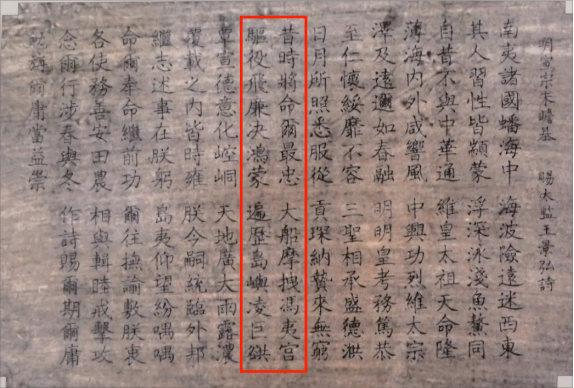 明宣宗朱瞻基 賜太監王景弘詩
南夷諸國蟠海中 海波險遠迷西東
其人習性皆顓蒙 浮深泳淺魚鱉同
自昔不與中華通 維皇太祖天命隆
薄海內外咸響風 中興功烈維太宗
澤及遠邇如春融 明明皇考務篤恭
至仁懷綏靡不容 三聖相承盛德洪
日月所照悉服從 貢琛納贄來無窮
昔時將命爾最忠 大船摩拽馮夷宮
驅役飛廉決鴻蒙 遍歷島嶼凌巨谼
覃宣德意化崆峒 天地廣大雨露濃
覆載之內皆時雍 朕今嗣統臨外邦
繼志述事在朕躬 島夷仰望紛喁喁
命爾奉命繼前功 爾往撫諭敷朕衷
各使務善安田農 相與輯睦戒擊攻
念爾行涉春與冬 作詩賜爾期爾庸
勉旃爾庸當益崇